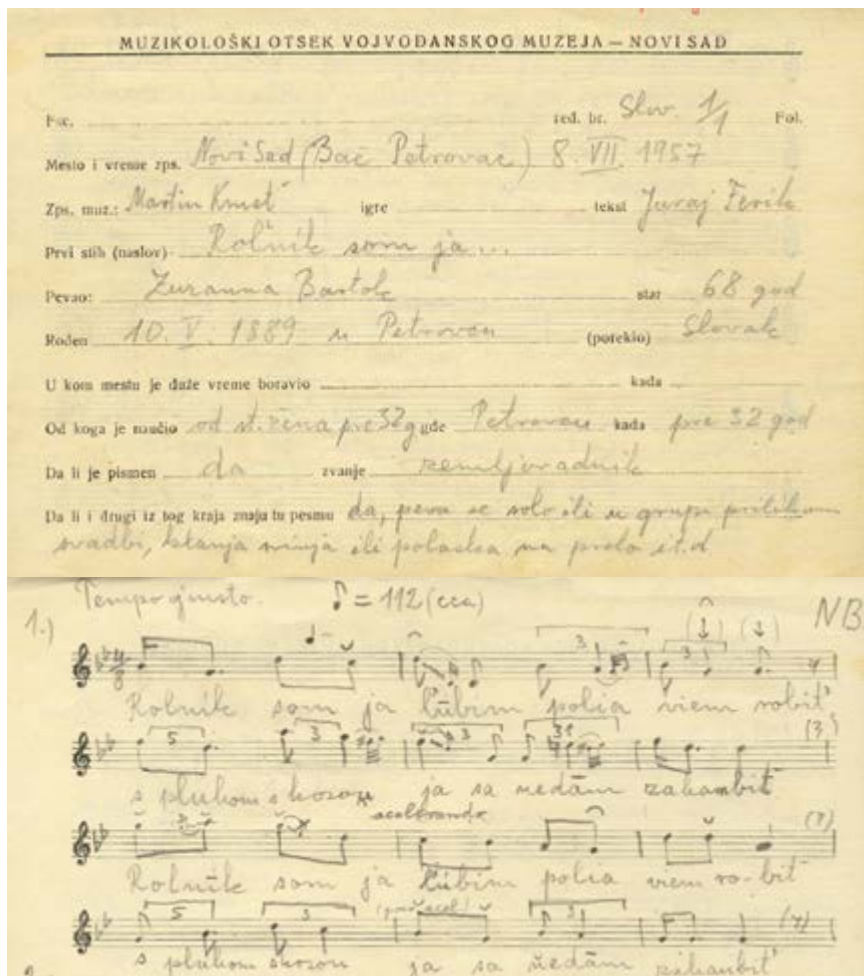 MUZIKOLOŠKI OTSEK VOJVODANSKOG MUZEJA — NOVI SAD
Fsc. red. br. Slov. 1/1 Fol.
Mesto i vreme zps. Novi Sad (Bač Petrovac) 8. VII. 1957
Zps. muz.: Martin Kmeť igre tekst Juraj Ferik
Prvi stih (naslov) Roľník som ja...
Pevao: Zuzanna Bartok star 68 god
Rođen 10. V. 1889 u Petrovcu (poreklo) Slovak
U kom mestu je duže vreme boravio kada
Od koga je naučio od st. žena pre 32 g gde Petrovcu kada pre 32 god
Da li je pismen da zvanje zemljoradnik
Da li i drugi iz tog kraja znaju tu pesmu da, peva se solo ili u grupi prilikom
svadbi, ili polaska na prelo i t.d
1.) Tempo giusto. ♪ = 112 (cca) NB
4/8 3 3
Rolník som ja ľúbim polia viem robiť
5 3 3 3 (3)
s pluhom s kosou ja sa nedám zahambiť
(3)
Rolník som ja ľúbim polia viem ro-biť
5 3 3
s pluhom s kosou ja sa nedám zahambiť